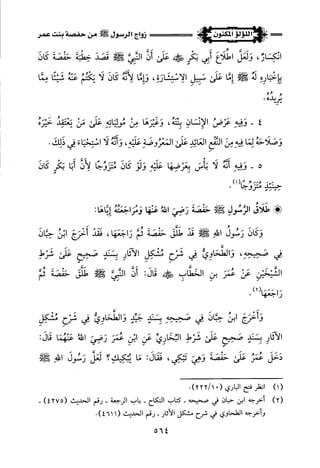 اللؤلؤ المكنون
زواج الرسول ﷺ من حفصة بنت عمر
انْكِسَارٌ، وَلَعَلَّ اطِّلَاعَ أَبِي بَكْرٍ ﷺ عَلَى أَنَّ النَّبِيَّ ﷺ قَصَدَ خِطْبَةَ حَفْصَةَ كَانَ
بِإِخْبَارِهِ لَهُ ﷺ إِمَّا عَلَى سَبِيلِ الِاسْتِشَارَةِ، وَإِمَّا لِأَنَّهُ كَانَ لَا يَكْتُمُ عَنْهُ شَيْئًا مِمَّا
يُرِيدُهُ.
٤ - وَفِيهِ عَرْضُ الْإِنْسَانِ بِنْتَهُ، وَغَيْرَهَا مِنْ مُوَلِّيَاتِهِ عَلَى مَنْ يَعْتَقِدُ خَيْرَهُ
وَصَلَاحَهُ لِمَا فِيهِ مِنَ النَّفْعِ الْعَائِدِ عَلَى الْمَعْرُوضَةِ عَلَيْهِ، وَأَنَّهُ لَا اسْتِحْيَاءَ فِي ذَلِكَ.
٥ - وَفِيهِ أَنَّهُ لَا بَأْسَ بِعَرْضِهَا عَلَيْهِ وَلَوْ كَانَ مُتَزَوِّجًا لِأَنَّ أَبَا بَكْرٍ كَانَ
حِينَئِذٍ مُتَزَوِّجًا(١).
طَلَاقُ الرَّسُولِ ﷺ حَفْصَةَ رَضِيَ اللهُ عَنْهَا وَمُرَاجَعَتُهُ إِيَّاهَا:
وَكَانَ رَسُولُ اللهِ ﷺ قَدْ طَلَّقَ حَفْصَةَ ثُمَّ رَاجَعَهَا، فَقَدْ أَخْرَجَ ابْنُ حِبَّانَ
فِي صَحِيحِهِ، وَالطَّحَاوِيُّ فِي شَرْحِ مُشْكِلِ الْآثَارِ بِسَنَدٍ صَحِيحٍ عَلَى شَرْطِ
الشَّيْخَيْنِ عَنْ عُمَرَ بنِ الْخَطَّابِ ﷺ قَالَ: أَنَّ النَّبِيَّ ﷺ طَلَّقَ حَفْصَةَ ثُمَّ
رَاجَعَهَا(٢).
وَأَخْرَجَ ابْنُ حِبَّانَ فِي صَحِيحِهِ بِسَنَدٍ جَيِّدٍ وَالطَّحَاوِيُّ فِي شَرْحِ مُشْكِلِ
الْآثَارِ بِسَنَدٍ صَحِيحٍ عَلَى شَرْطِ الْبُخَارِيِّ عَنِ ابْنِ عُمَرَ رَضِيَ اللهُ عَنْهُمَا قَالَ:
دَخَلَ عُمَرُ عَلَى حَفْصَةَ وَهِيَ تَبْكِي، فَقَالَ: مَا يُبْكِيكِ؟ لَعَلَّ رَسُولَ اللهِ ﷺ
(١) انظر فتح الباري (٢٢٢/١٠).
(٢) أخرجه ابن حبان في صحيحه - كتاب الطلاق - باب الرجعة - رقم الحديث (٤٢٧٥) -
وأخرجه الطحاوي في شرح مشكل الآثار - رقم الحديث (٤٦١١).
٥٦٤